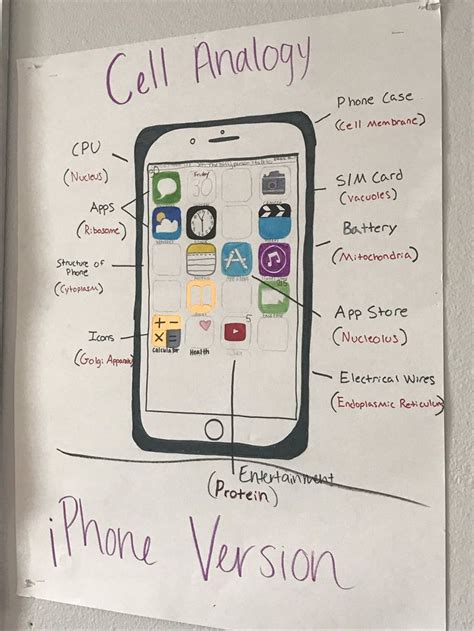 Cell Analogy
Phone Case
(Cell Membrane)
CPU
(Nucleus)
SIM Card
(Vacuoles)
Apps
(Ribosome)
Battery
(Mitochondria)
Structure of
Phone
(Cytoplasm)
App Store
(Nucleolus)
Icons
(Golgi Apparatus)
Electrical Wires
(Endoplasmic Reticulum)
Friday
30
5
Calculator
Health
Entertainment
(Protein)
iPhone Version